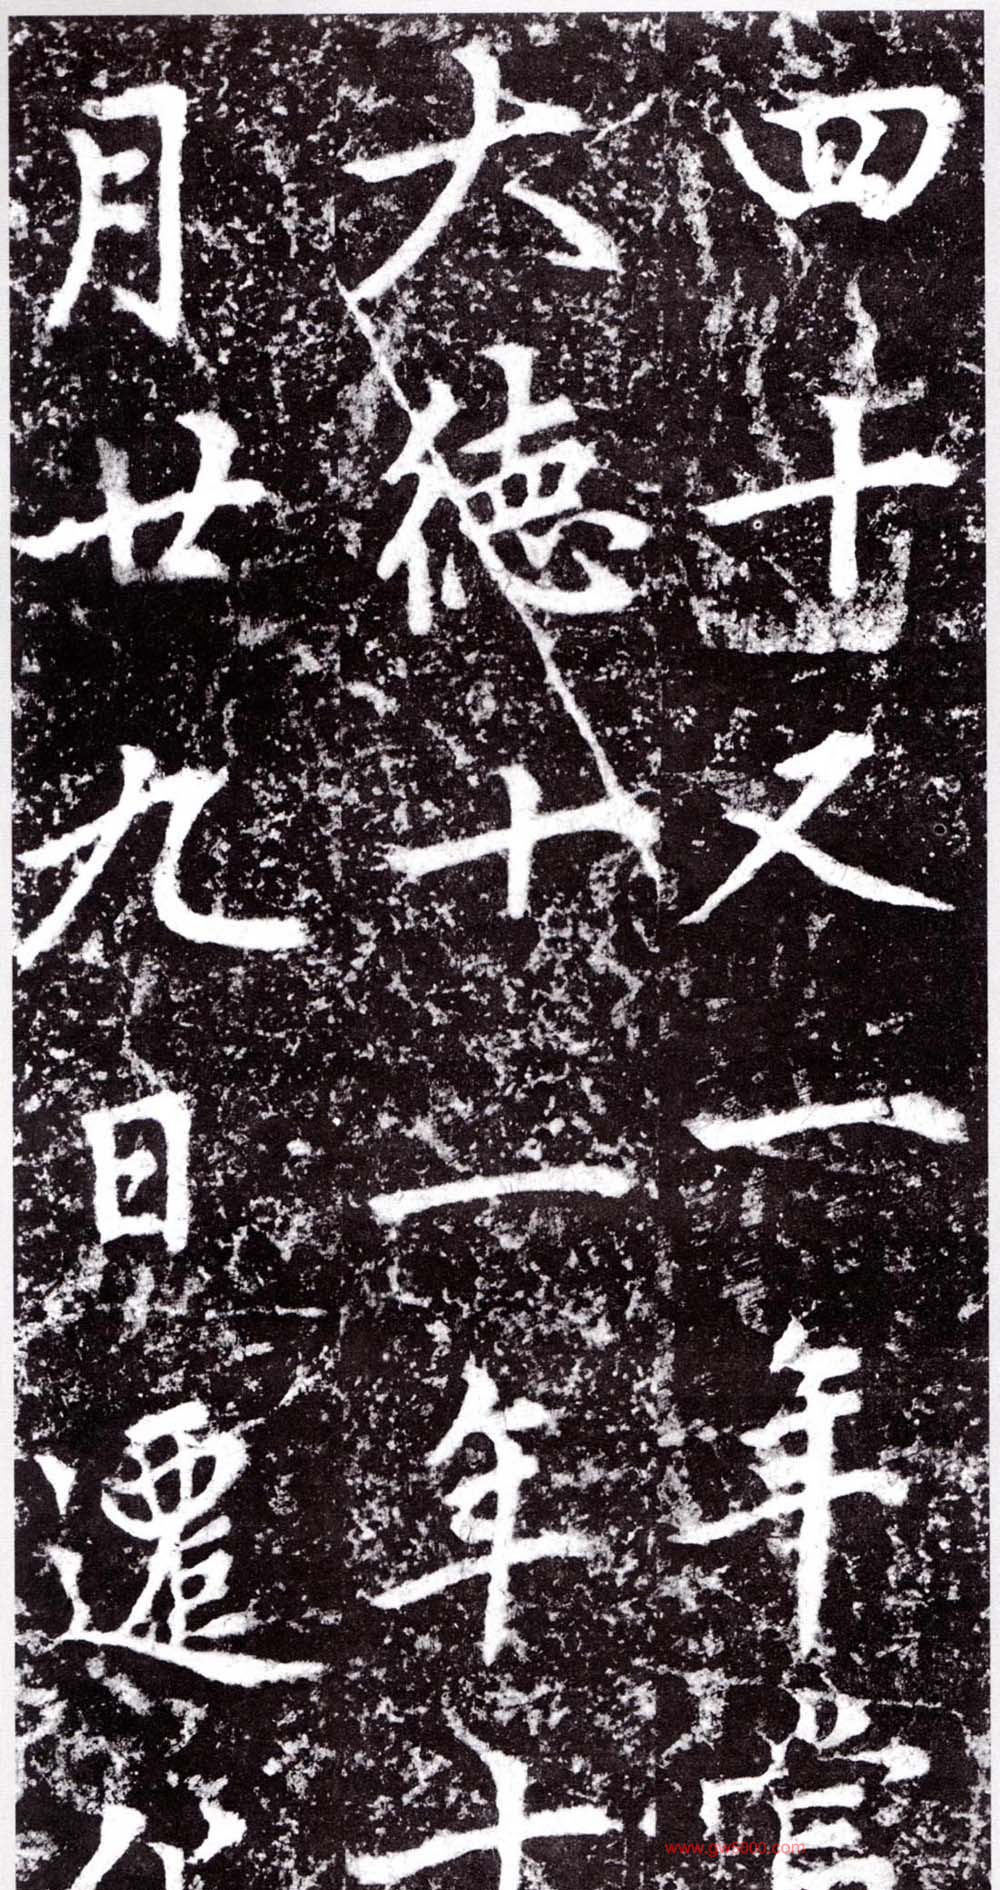 四十又一年
大德十一年十
月廿九日遷
www.gw5000.com